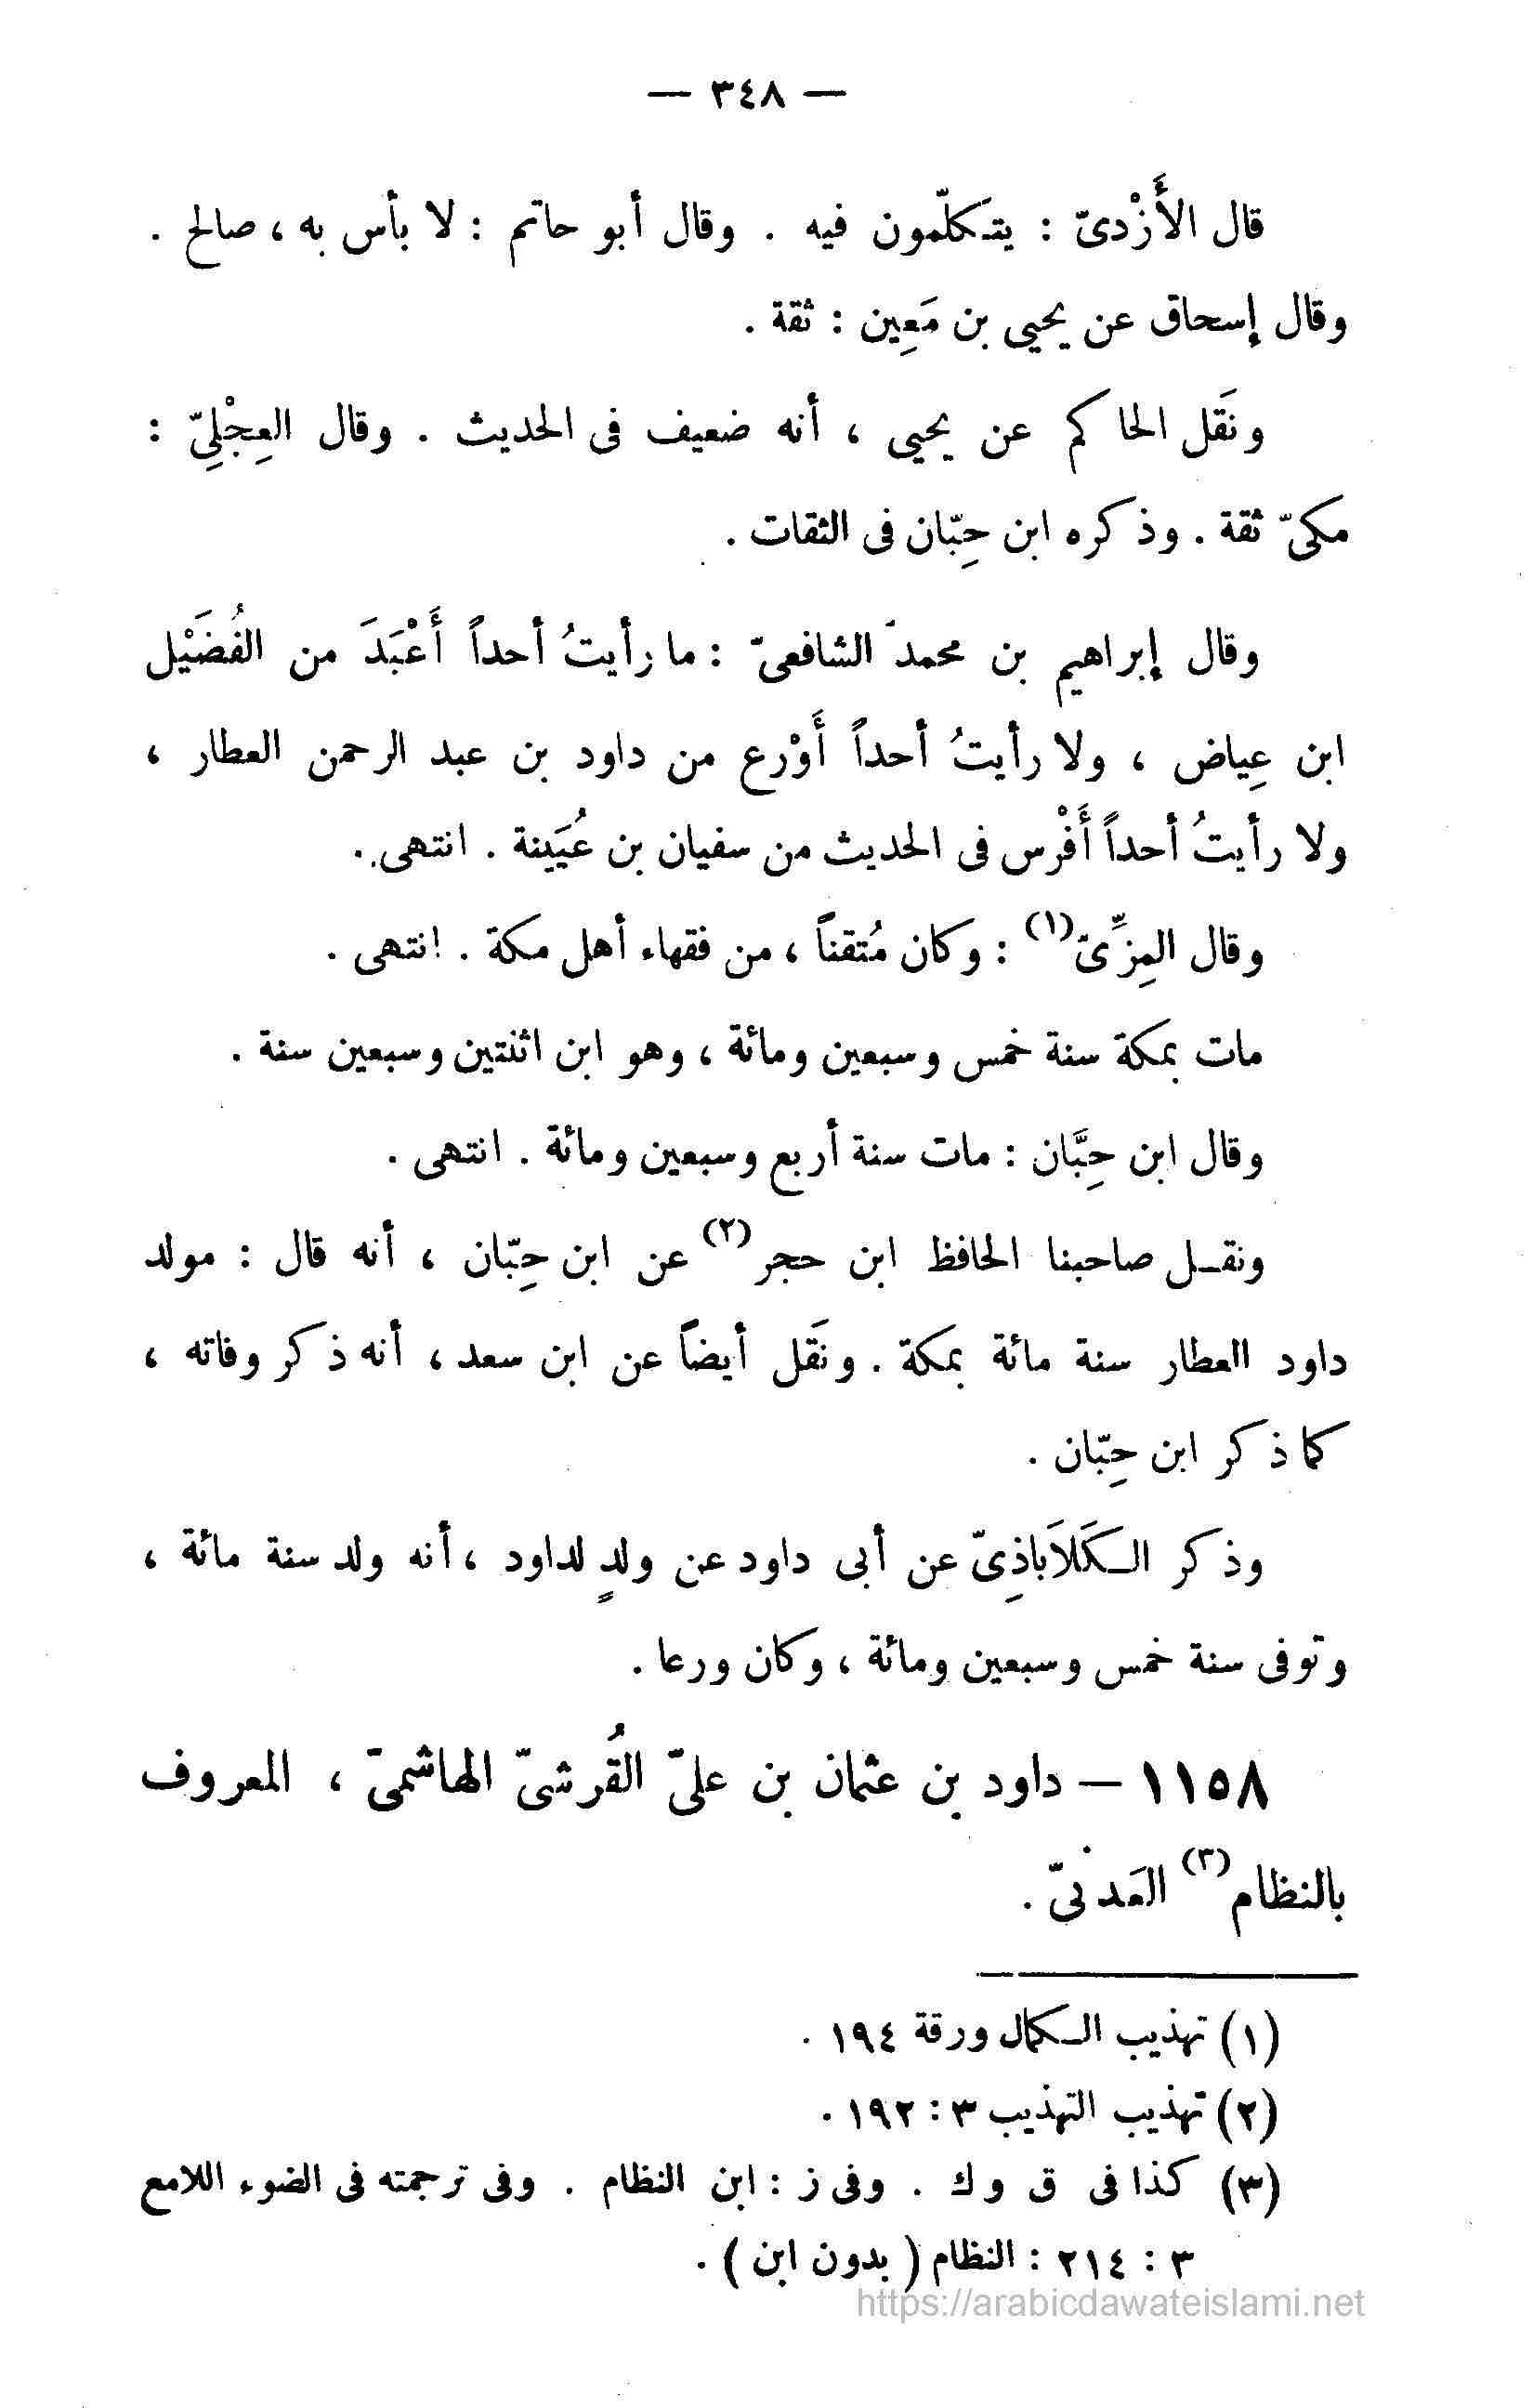 — ٣٤٨ —
قال الأَزْدىّ : يتكلّمون فيه . وقال أبو حاتم : لا بأس به ، صالح .
وقال إسحاق عن يحيى بن مَعِين : ثقة .
ونَقَل الحاكم عن يحيى ، أنه ضعيف فى الحديث . وقال العِجْلِىّ :
مكىّ ثقة . وذكره ابن حِبّان فى الثقات .
وقال إبراهيم بن محمد الشافعىّ : ما رأيتُ أحداً أَعْبَدَ من الفُضَيْل
ابن عِياض ، ولا رأيتُ أحداً أَوْرع من داود بن عبد الرحمن العطار ،
ولا رأيتُ أحداً أَفْرس فى الحديث من سفيان بن عُيَينة . انتهى .
وقال المِزِّىّ (١) : وكان مُتقناً ، من فقهاء أهل مكة . انتهى .
مات بمكة سنة خمس وسبعين ومائة ، وهو ابن اثنتين وسبعين سنة .
وقال ابن حِبَّان : مات سنة أربع وسبعين ومائة . انتهى .
ونقـل صاحبنا الحافظ ابن حجر (٢) عن ابن حِبّان ، أنه قال : مولد
داود العطار سنة مائة بمكة . ونَقَل أيضاً عن ابن سعد ، أنه ذكر وفاته ،
كما ذكر ابن حِبّان .
وذكر الـكَلاَباذِىّ عن أبى داود عن ولدٍ لداود ، أنه ولد سنة مائة ،
وتوفى سنة خمس وسبعين ومائة ، وكان ورعا .
١١٥٨ — داود بن عثمان بن علىّ القُرشىّ الهاشمىّ ، المعروف
بالنظام (٣) العَدنىّ .
(١) تهذيب الـكمال ورقة ١٩٤ .
(٢) تهذيب التهذيب ٣ : ١٩٢ .
(٣) كذا فى ق و ك . وفى ز : ابن النظام . وفى ترجمته فى الضوء اللامع
٣ : ٢١٤ : النظام ( بدون ابن ) .
https://arabicdawateislami.net